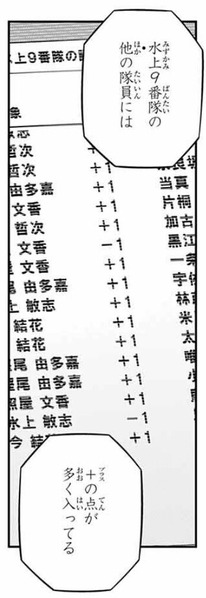 水上9番隊の
他の隊員には
水上9番隊の
象
敏志
哲次 +1
哲次 +1
由多嘉 +1
文香 +1
哲次 +1
文香 -1
文香 +1
尾 由多嘉 +1
上 敏志 +1
結花 +1
結花 +1
尾 由多嘉 +1
尾 由多嘉 +1
照屋 文香 +1
水上 敏志 -1
今 結花 +1
真
当
片 桐
加 古
黒 江
一 条
宇
林
米
太
唯
小
+の点が
多く入ってる